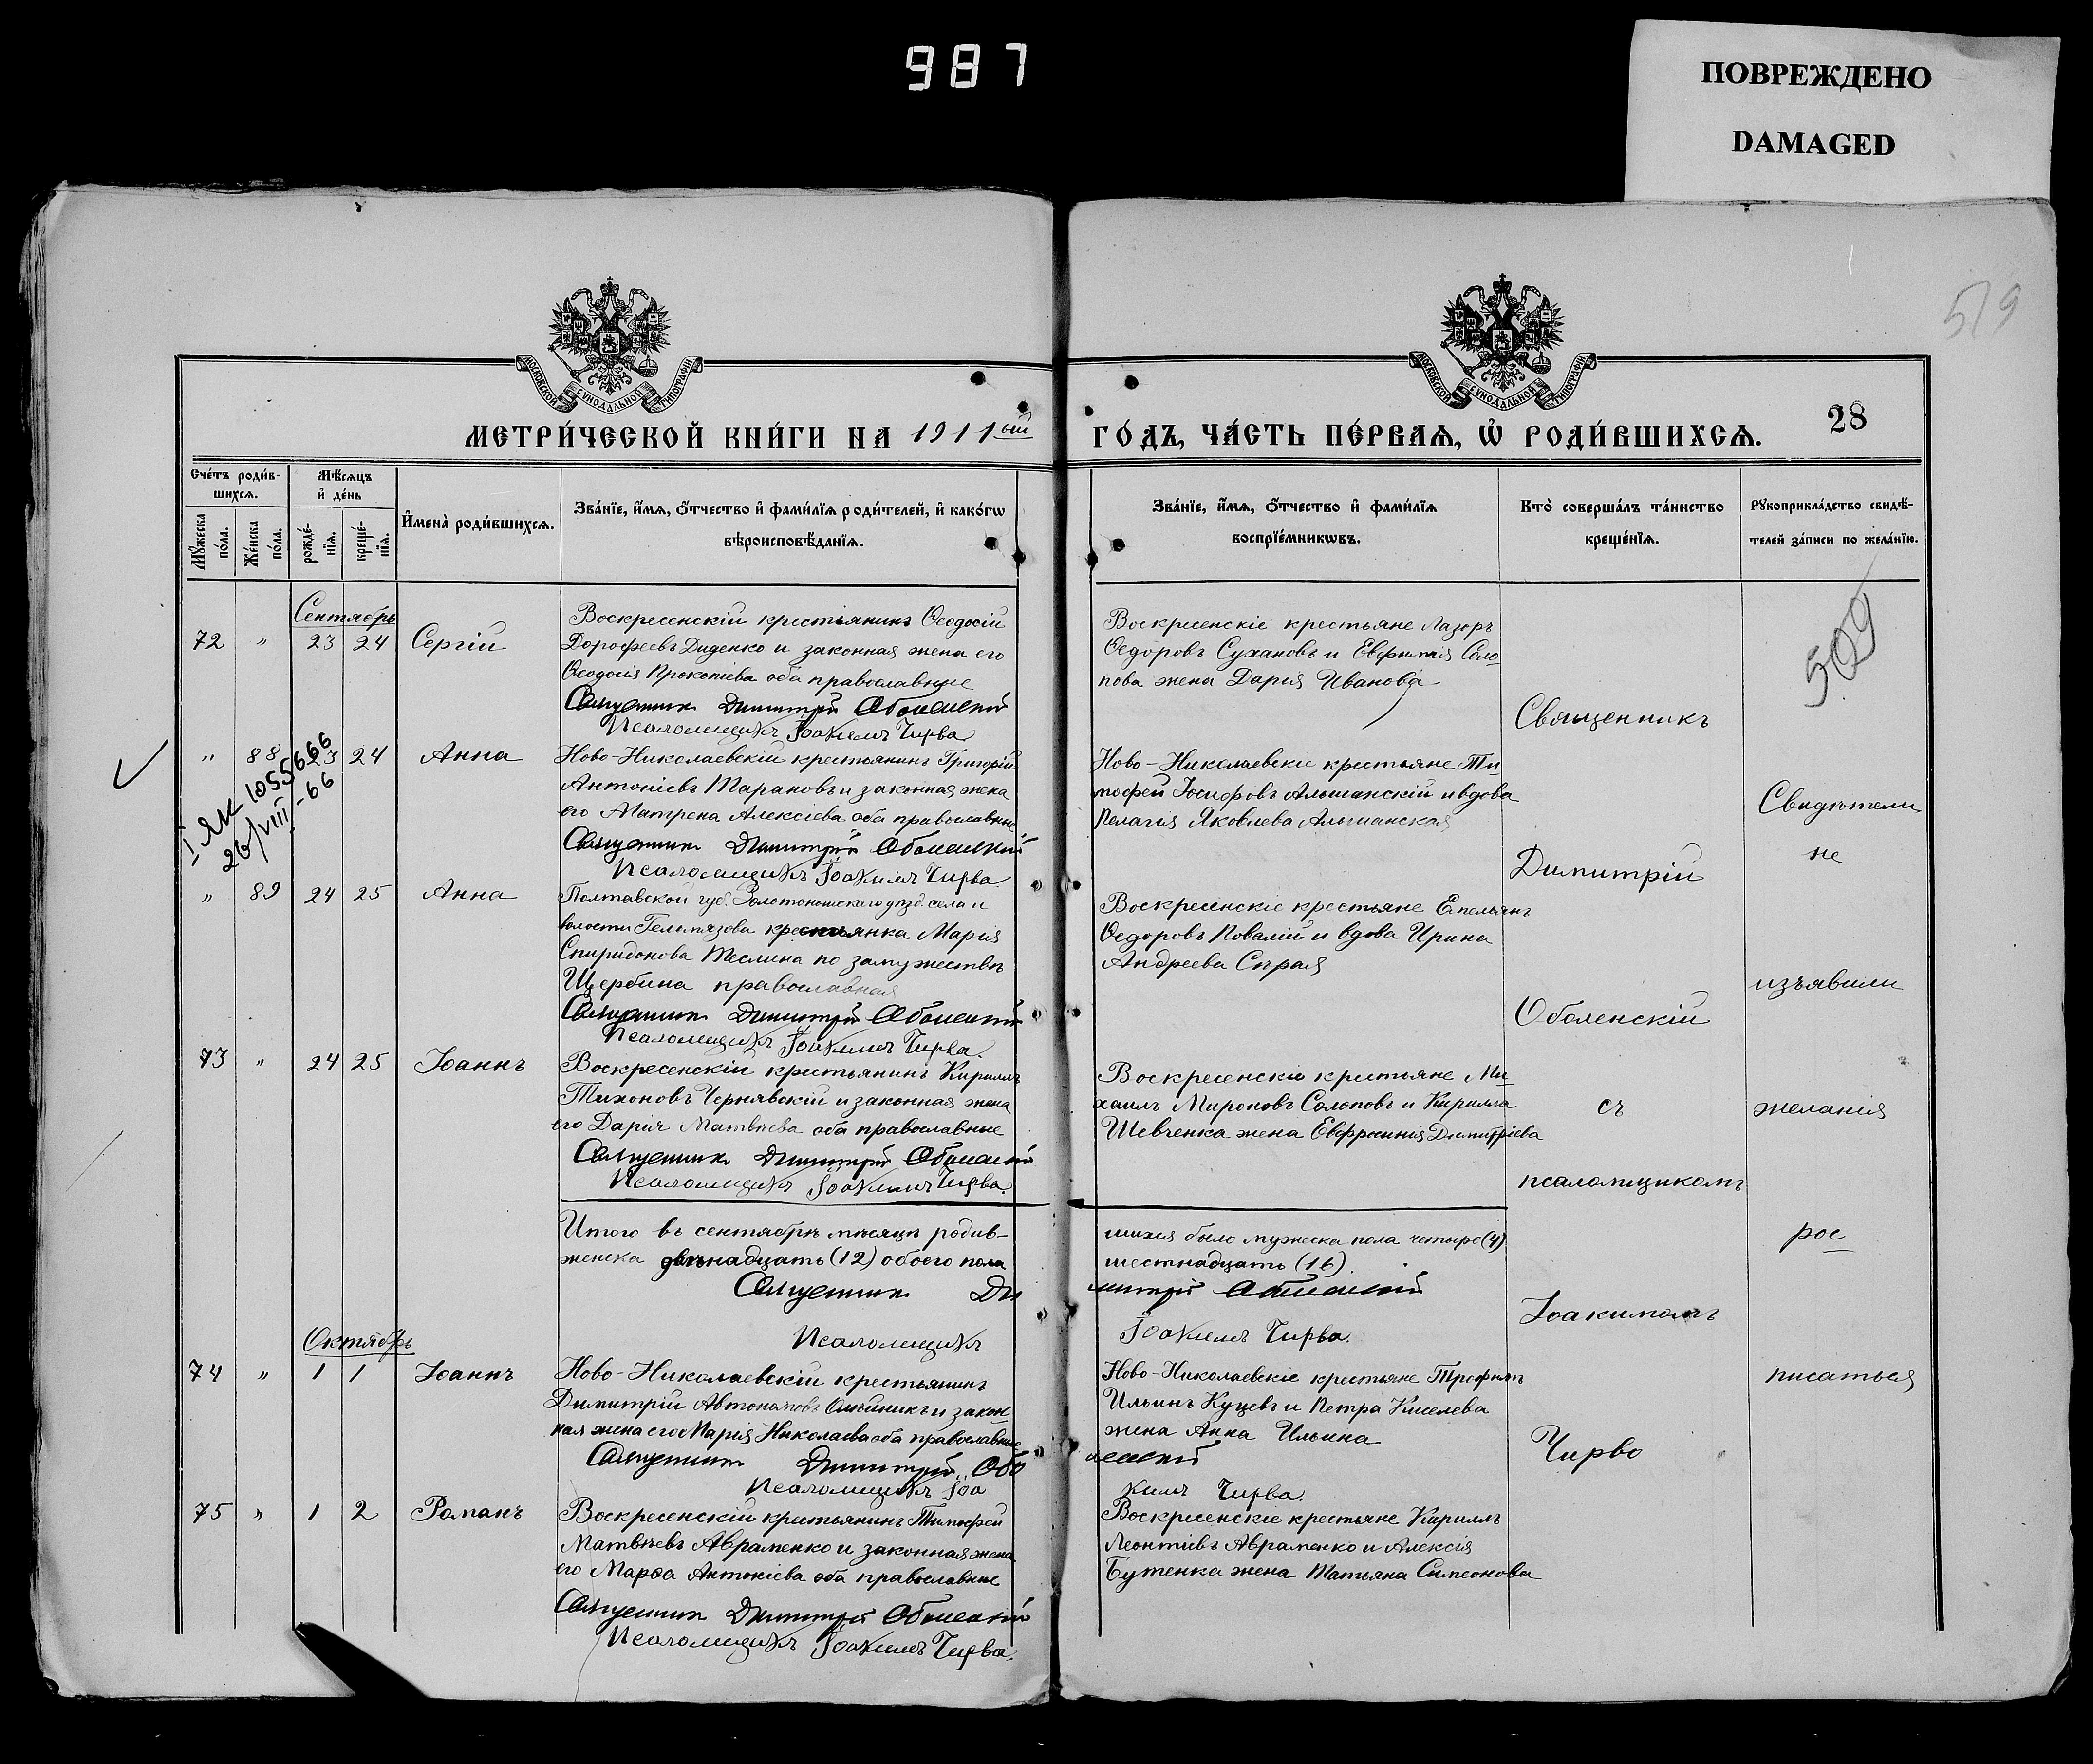 987
ПОВРЕЖДЕНО
DAMAGED
519
МОСКОВСКОЙ СѴНОДАЛЬНОЙ ТИПОГРАФІИ
МОСКОВСКОЙ СѴНОДАЛЬНОЙ ТИПОГРАФІИ
МЕТРИ́ЧЕСКОЙ КНИ́ГИ НА 1911ый ГО́ДЪ, ЧА́СТЬ ПЕ́РВАѦ, Ѡ҆ РОДИ́ВШИХСѦ.
28
Сче́тъ роди́в-
шихсѧ.
Мѣ́сѧцъ
и҆ де́нь
Мꙋ́жеска
по́ла.
Же́нска
по́ла.
рожде́-
нїѧ.
креще́-
нїѧ.
И҆мена̀ роди́вшихсѧ.
Зва́нїе, и҆́мѧ, ѻ҆́тчество и҆ фами́лїѧ роди́телей, и҆ како́гѡ
вѣроисповѣ́данїѧ.
Зва́нїе, и҆́мѧ, ѻ҆́тчество и҆ фами́лїѧ
воспрїе́мникѡвъ.
Кто̀ соверша́лъ та́инство
креще́нїѧ.
Рꙋкоприкла́дство свидѣ́-
телей за́писи по жела́нїю.
Сентябрь
72 " 23 24 Сергій
Воскресенскій крестьянинъ Ѳеодосій
Дорофеевъ Диденко и законная жена его
Ѳеодосія Прокопіева оба православные
Священникъ Димитрій Оболенскій
Псаломщикъ Іоакимъ Чирва
Воскресенскіе крестьяне Лазорь
Ѳедоровъ Сухановъ и Евфимія Соло
пова жена Дарія Иванова
509
Священникъ
" 88 23 24 Анна
I ЯК 1055666
26/VIII-66
Ново-Николаевскій крестьянинъ Григорій
Антоніевъ Тарановъ и законная жена
его Матрена Алексіева оба православные
Священникъ Димитрій Оболенскій
Псаломщикъ Іоакимъ Чирва
Ново-Николаевскіе крестьяне Ти
мофей Іосифовъ Альшанскій и вдова
Пелагія Яковлева Альшанская
Свидѣтели
не
Димитрій
" 89 24 25 Анна
Полтавской губ. Золотоношскаго уѣзд. села и
волости Гельмязева крестьянка Марія
Спиридонова Теслина по замужествѣ
Щербина православная
Священникъ Димитрій Оболенскій
Псаломщикъ Іоакимъ Чирва.
Воскресенскіе крестьяне Емельянъ
Ѳедоровъ Ковалій и вдова Ирина
Андреева Сѣрая
изъявили
Оболенскій
73 " 24 25 Іоаннъ
Воскресенскій крестьянинъ Кириллъ
Тихоновъ Чернявскій и законная жена
его Дарія Матвѣева оба православные
Священникъ Димитрій Оболенскій
Псаломщикъ Іоакимъ Чирва.
Воскресенскіе крестьяне Ми
хаилъ Мироновъ Солоповъ и Кирилла
Шевченка жена Евфросинія Димитріева
съ
желанія
псаломщикомъ
Итого въ сентябрѣ мѣсяцѣ родив-
шихся было мужеска пола четыре (4)
женска двѣнадцать (12) обоего пола
шестнадцать (16).
Священникъ Димитрій Оболенскій
Псаломщикъ Іоакимъ Чирва.
рос
Іоакимомъ
Октябрь
74 " 1 1 Іоаннъ
Ново-Николаевскій крестьянинъ
Димитрій Автономовъ Олейникъ и закон-
ная жена его Марія Николаева оба православные
Священникъ Димитрій Оболенскій
Псаломщикъ Іоакимъ Чирва.
Ново-Николаевскіе крестьяне Трофимъ
Ильинъ Куцевъ и Петра Киселева
жена Анна Ильина
писаться
Чирво
75 " 1 2 Романъ
Воскресенскій крестьянинъ Тимофей
Матвѣевъ Авраменко и законная жена
его Марѳа Антоніева оба православные
Священникъ Димитрій Оболенскій
Псаломщикъ Іоакимъ Чирва.
Воскресенскіе крестьяне Кириллъ
Леонтіевъ Авраменко и Алексія
Бутенка жена Татьяна Симеонова